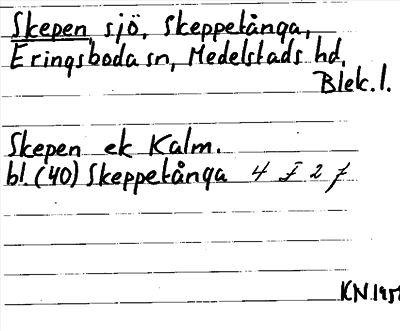 Skepen, sjö, Skeppetånga,
Eringsboda sn, Medelstads hd,
Blek. l.
Skepen ek Kalm.
bl. (40) Skeppetånga 4 I 2 f
KN.195